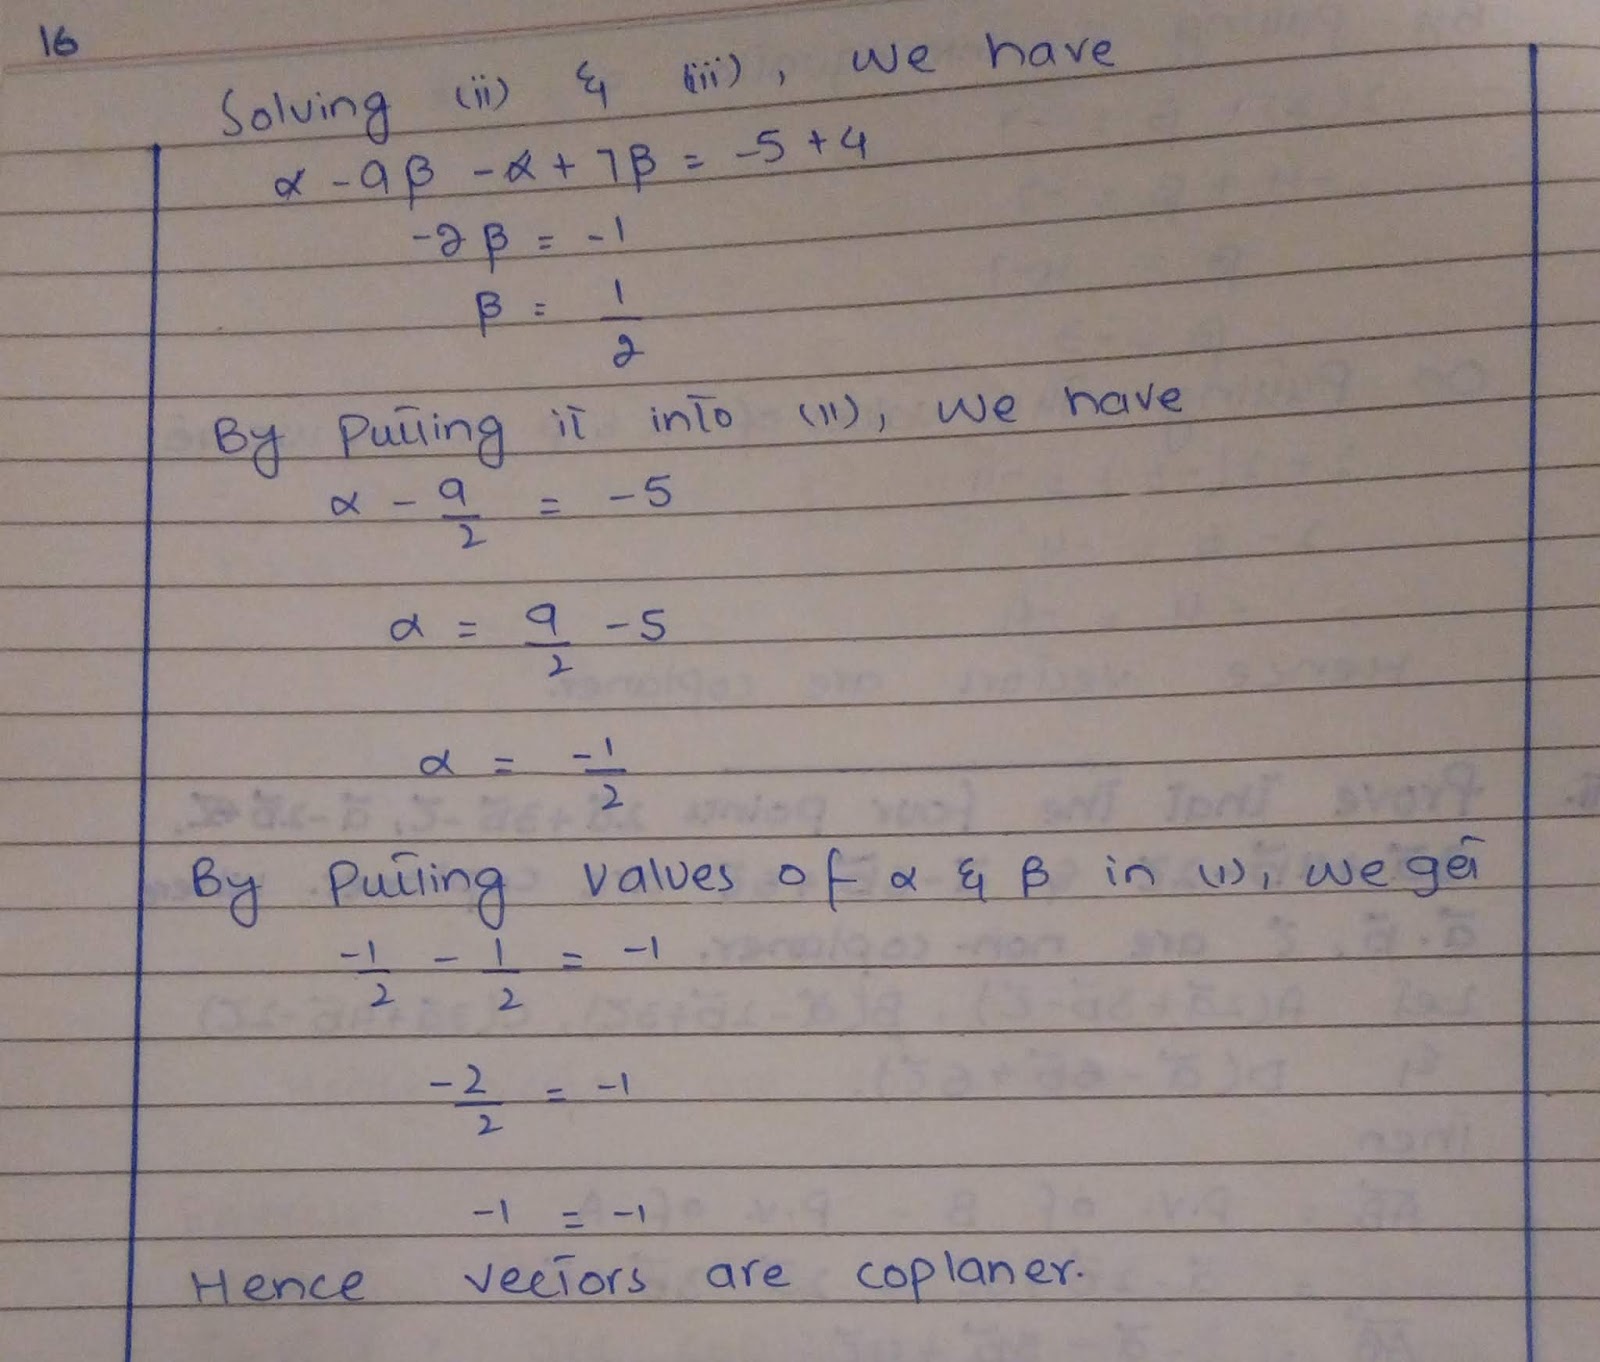 16
Solving (ii) & (iii), we have
α - 9β - α + 7β = -5 + 4
-2β = -1
β = 1/2
By Putting it into (ii), we have
α - 9/2 = -5
α = 9/2 - 5
α = -1/2
By Putting values of α & β in (i), we get
-1/2 - 1/2 = -1
-2/2 = -1
-1 = -1
Hence vectors are coplaner.